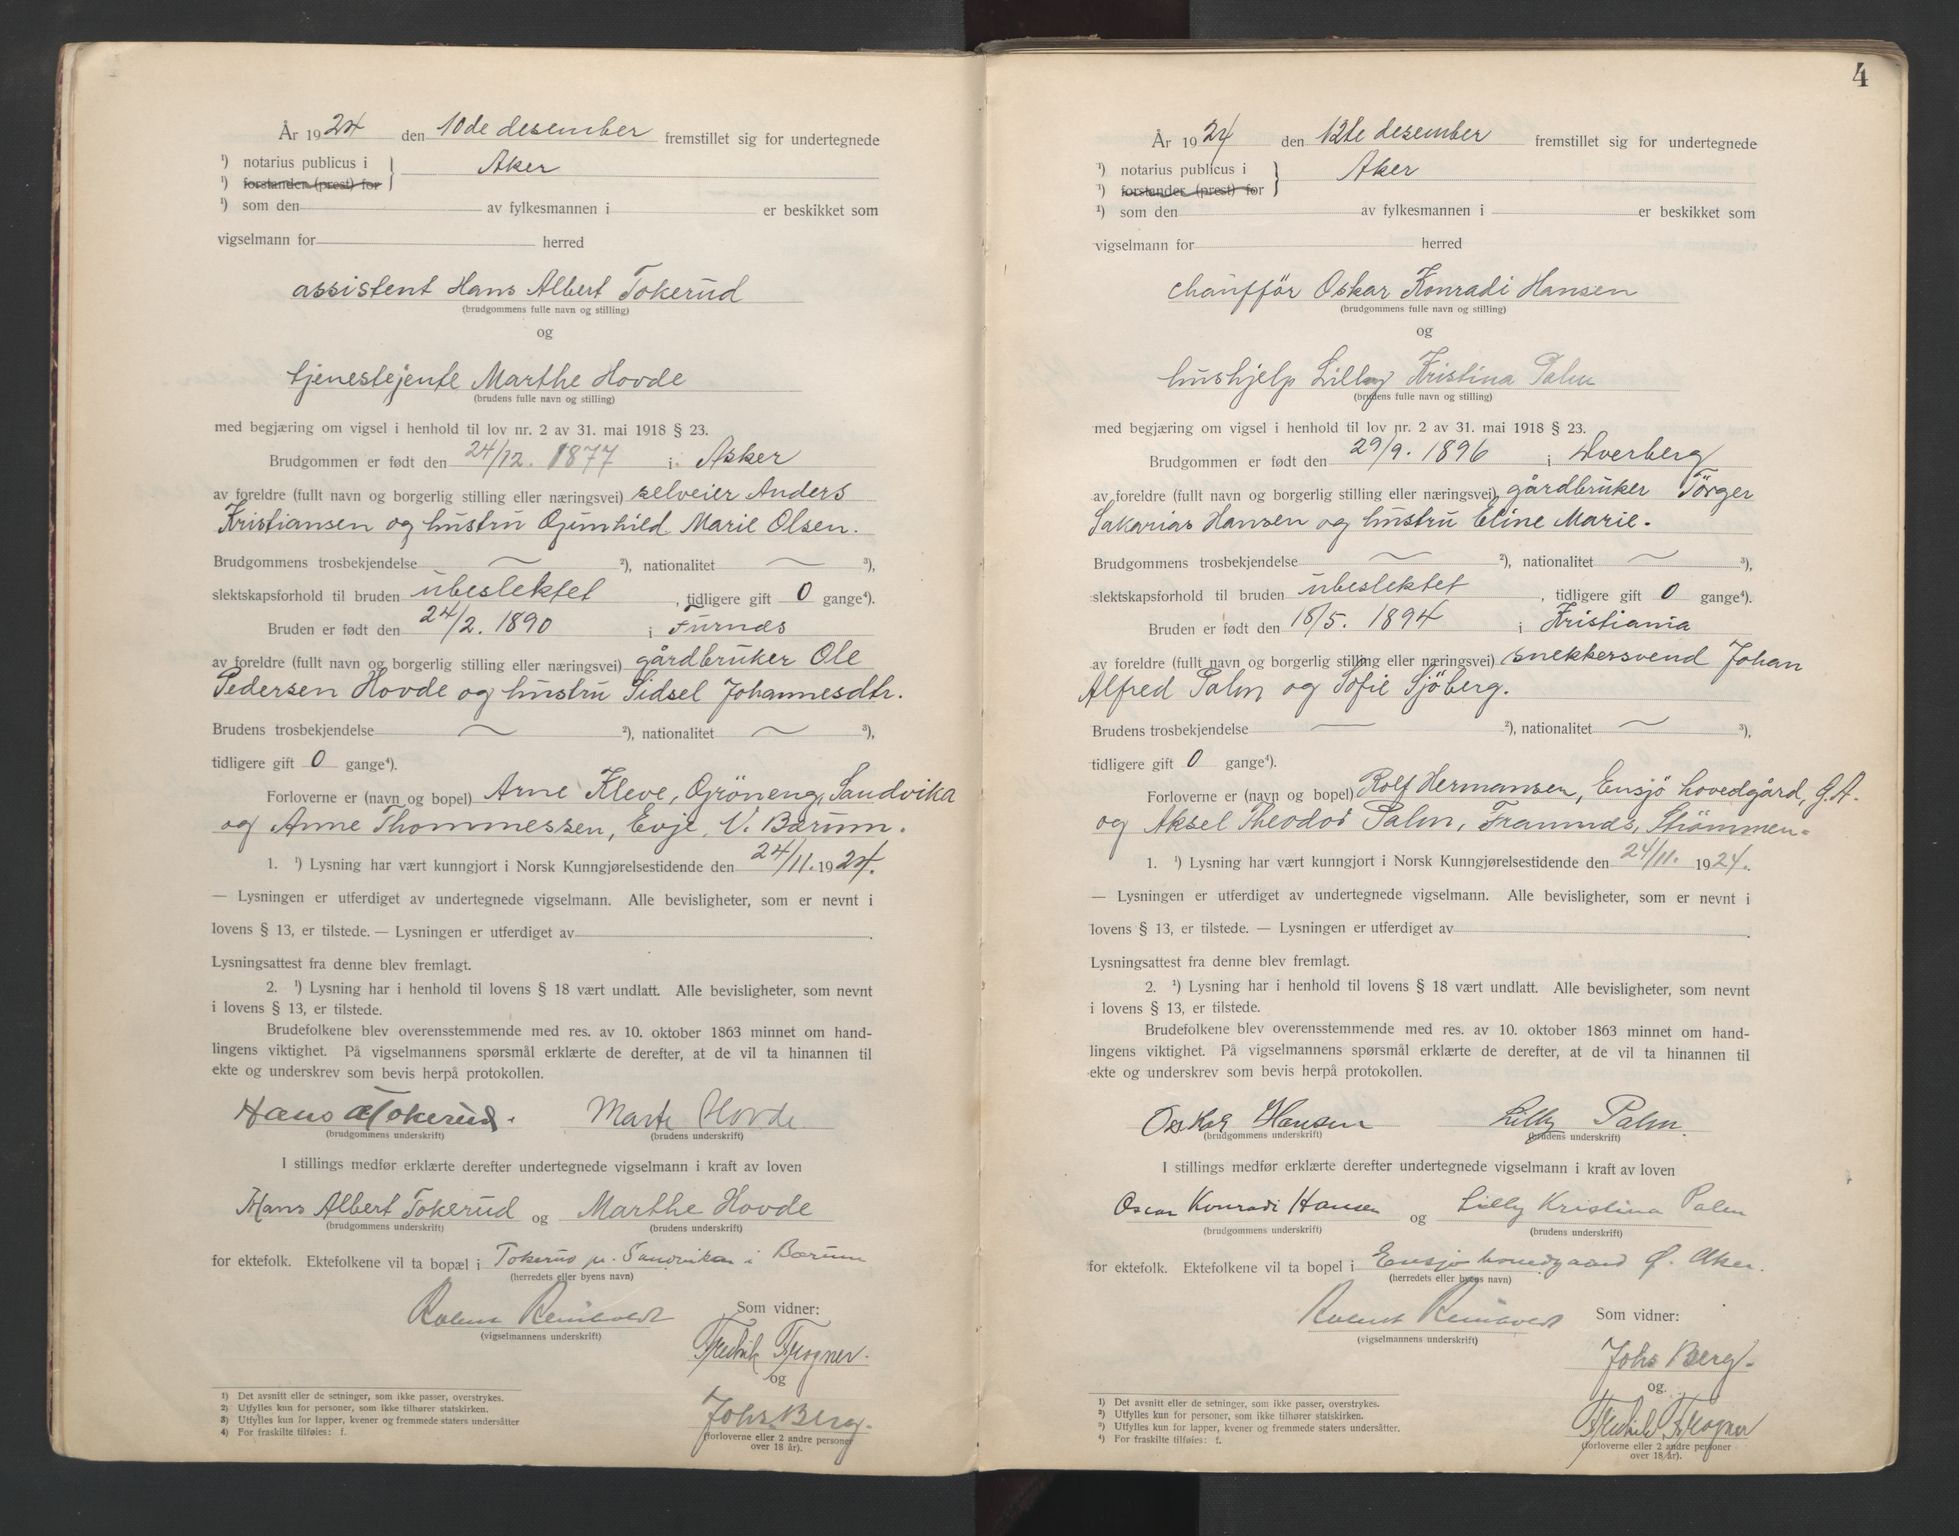 År 1924 den 10de desember fremstillet sig for undertegnede
¹) notarius publicus i } Aker
¹) forstander (prest) for
¹) som den av fylkesmannen i er beskikket som
vigselmann for herred
assistent Hans Albert Tokerud
(brudgommens fulle navn og stilling)
og
tjenestejente Marthe Hovde
(brudens fulle navn og stilling)
med begjæring om vigsel i henhold til lov nr. 2 av 31. mai 1918 § 23.
Brudgommen er født den 24/12. 1877 i Asker
av foreldre (fullt navn og borgerlig stilling eller næringsvei) selveier Anders
Kristiansen og hustru Gunhild Marie Olsen.
Brudgommens trosbekjendelse ~ ²), nationalitet ~ ³),
slektskapsforhold til bruden ubeslektet, tidligere gift 0 gange⁴).
Bruden er født den 24/2. 1890 i Furnes
av foreldre (fullt navn og borgerlig stilling eller næringsvei) gårdbruker Ole
Pedersen Hovde og hustru Sidsel Johannesdtr.
Brudens trosbekjendelse ~ ²), nationalitet ~ ³),
tidligere gift 0 gange⁴).
Forloverne er (navn og bopel) Arne Kleve, Gröneng, Sandvika
og Anne Thommessen, Evje, V. Bærum.
1. ¹) Lysning har vært kunngjort i Norsk Kunngjørelsestidende den 24/11. 1924.
— Lysningen er utferdiget av undertegnede vigselmann. Alle bevisligheter, som er nevnt i
lovens § 13, er tilstede. — Lysningen er utferdiget av
Lysningsattest fra denne blev fremlagt.
2. ¹) Lysning har i henhold til lovens § 18 vært undlatt. Alle bevisligheter, som nevnt
i lovens § 13, er tilstede.
Brudefolkene blev overensstemmende med res. av 10. oktober 1863 minnet om hand-
lingens viktighet. På vigselmannens spørsmål erklærte de derefter, at de vil ta hinannen til
ekte og underskrev som bevis herpå protokollen.
Hans A Tokerud. Marte Hovde
(brudgommens underskrift) (brudens underskrift)
I stillings medfør erklærte derefter undertegnede vigselmann i kraft av loven
Hans Albert Tokerud og Marthe Hovde
(brudgommens underskrift) (brudens underskrift)
for ektefolk. Ektefolkene vil ta bopæl i Tokerud pr. Sandviken i Bærum
(herredets eller byens navn)
(vigselmannens underskrift)
Som vidner:
Fredrik Frogner.
og
Johs. Berg.
(forloverne eller 2 andre personer
over 18 år).
1) Det avsnitt eller de setninger, som ikke passer, overstrykes.
2) Utfylles kun for personer, som ikke tilhører statskirken.
3) Utfylles kun for lapper, kvener og fremmede staters undersåtter
4) For fraskilte tilføies: f.
4
År 1924 den 12te desember fremstillet sig for undertegnede
¹) notarius publicus i } Aker
¹) forstander (prest) for
¹) som den av fylkesmannen i er beskikket som
vigselmann for herred
chaufför Oskar Konradi Hansen
(brudgommens fulle navn og stilling)
og
hushjelp Lilly Kristina Palm
(brudens fulle navn og stilling)
med begjæring om vigsel i henhold til lov nr. 2 av 31. mai 1918 § 23.
Brudgommen er født den 29/9. 1896 i Dverberg
av foreldre (fullt navn og borgerlig stilling eller næringsvei) gårdbruker Törger
Sakarias Hansen og hustru Eline Marie.
Brudgommens trosbekjendelse ~ ²), nationalitet ~ ³),
slektskapsforhold til bruden ubeslektet, tidligere gift 0 gange⁴).
Bruden er født den 18/5. 1894 i Kristiania
av foreldre (fullt navn og borgerlig stilling eller næringsvei) snekkersvend Johan
Alfred Palm og Sofie Sjöberg.
Brudens trosbekjendelse ~ ²), nationalitet ~ ³),
tidligere gift 0 gange⁴).
Forloverne er (navn og bopel) Rolf Hermansen, Ensjö hovedgård, G.A.
og Aksel Theodor Palm, Framnes, Strömmen.
1. ¹) Lysning har vært kunngjort i Norsk Kunngjørelsestidende den 24/11. 1924.
— Lysningen er utferdiget av undertegnede vigselmann. Alle bevisligheter, som er nevnt i
lovens § 13, er tilstede. — Lysningen er utferdiget av
Lysningsattest fra denne blev fremlagt.
2. ¹) Lysning har i henhold til lovens § 18 vært undlatt. Alle bevisligheter, som nevnt
i lovens § 13, er tilstede.
Brudefolkene blev overensstemmende med res. av 10. oktober 1863 minnet om hand-
lingens viktighet. På vigselmannens spørsmål erklærte de derefter, at de vil ta hinannen til
ekte og underskrev som bevis herpå protokollen.
Oskar Hansen Lilly Palm.
(brudgommens underskrift) (brudens underskrift)
I stillings medfør erklærte derefter undertegnede vigselmann i kraft av loven
Oscar Konradi Hansen og Lilly Kristina Palm
(brudgommens underskrift) (brudens underskrift)
for ektefolk. Ektefolkene vil ta bopel i Ensjø hovedgaard Ø. Aker.
(herredets eller byens navn)
(vigselmannens underskrift)
Som vidner:
Johs Berg.
og
Fredrik Frogner
(forloverne eller 2 andre personer
over 18 år).
1) Det avsnitt eller de setninger, som ikke passer, overstrykes.
2) Utfylles kun for personer, som ikke tilhører statskirken.
3) Utfylles kun for lapper, kvener og fremmede staters undersåtter.
4) For fraskilte tilføies: f.